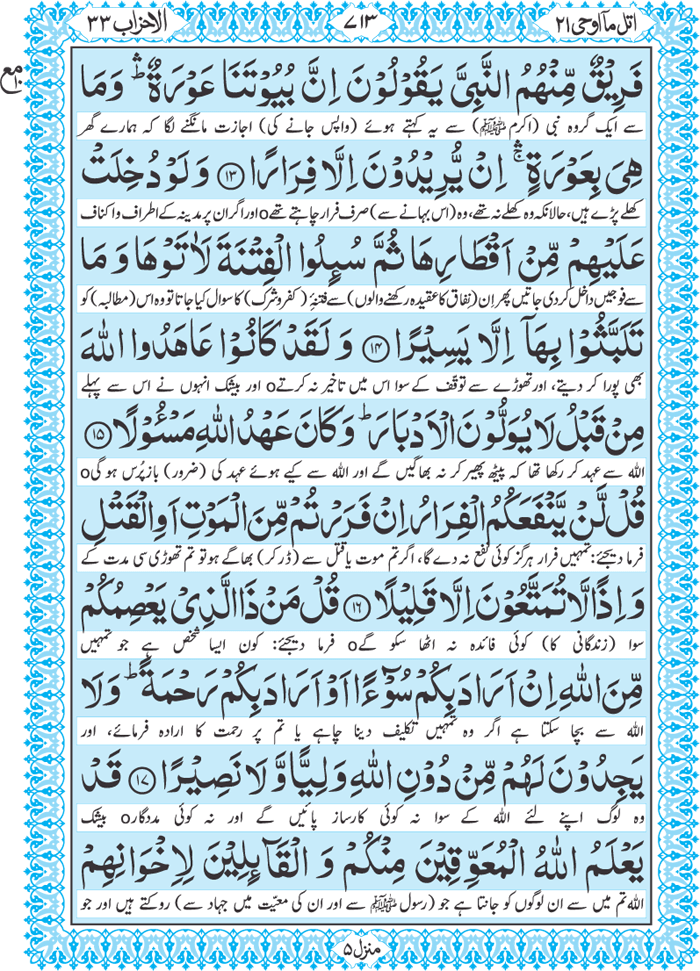 اتل مآ اوحی ۲۱
۷۱۳
الاحزاب ۳۳
مع ۱۰
فَرِیۡقٌ مِّنۡهُمُ النَّبِیَّ یَقُوۡلُوۡنَ اِنَّ بُیُوۡتَنَا عَوۡرَةٌ ؕۛ وَمَا
سے ایک گروہ نبی (اکرم ﷺ) سے یہ کہتے ہوئے (واپس جانے کی) اجازت مانگنے لگا کہ ہمارے گھر
هِیَ بِعَوۡرَةٍ ۚۛ اِنۡ یُّرِیۡدُوۡنَ اِلَّا فِرَارًا ۱۳ وَلَوۡ دُخِلَتۡ
کھلے پڑے ہیں، حالانکہ وہ کھلے نہ تھے، وہ (اس بہانے سے) صرف فرار چاہتے تھےo اور اگر ان پر مدینہ کے اطراف و اکناف
عَلَیۡهِمۡ مِّنۡ اَقۡطَارِهَا ثُمَّ سُئِلُوا الۡفِتۡنَةَ لَاٰتَوۡهَا وَمَا
سے فوجیں داخل کر دی جاتیں پھر اِن (نفاق کا عقیدہ رکھنے والوں) سے فتنۂ (کفر و شرک) کا سوال کیا جاتا تو وہ اس (مطالبہ) کو
تَلَبَّثُوۡا بِهَاۤ اِلَّا یَسِیۡرًا ۱۴ وَلَقَدۡ كَانُوۡا عَاهَدُوا اللّٰهَ
بھی پورا کر دیتے، اور تھوڑے سے توقّف کے سوا اس میں تاخیر نہ کرتےo اور بیشک انہوں نے اس سے پہلے
مِنۡ قَبۡلُ لَا یُوَلُّوۡنَ الۡاَدۡبَارَ ؕ وَكَانَ عَهۡدُ اللّٰهِ مَسۡـُٔوۡلًا ۱۵
اللہ سے عہد کر رکھا تھا کہ پیٹھ پھیر کر نہ بھاگیں گے اور اللہ سے کیے ہوئے عہد کی (ضرور) بازپُرس ہو گیo
قُلۡ لَّنۡ یَّنۡفَعَكُمُ الۡفِرَارُ اِنۡ فَرَرۡتُمۡ مِّنَ الۡمَوۡتِ اَوِ الۡقَتۡلِ
فرما دیجئے: تمہیں فرار ہرگز کوئی نفع نہ دے گا، اگر تم موت یا قتل سے (ڈر کر) بھاگے ہو تو تم تھوڑی سی مدت کے
وَاِذًا لَّا تُمَتَّعُوۡنَ اِلَّا قَلِیۡلًا ۱۶ قُلۡ مَنۡ ذَا الَّذِیۡ یَعۡصِمُكُمۡ
سوا (زندگانی کا) کوئی فائدہ نہ اٹھا سکو گےo فرما دیجئے: کون ایسا شخص ہے جو تمہیں
مِّنَ اللّٰهِ اِنۡ اَرَادَ بِكُمۡ سُوۡٓءًا اَوۡ اَرَادَ بِكُمۡ رَحۡمَةً ؕ وَلَا
اللہ سے بچا سکتا ہے اگر وہ تمہیں تکلیف دینا چاہے یا تم پر رحمت کا ارادہ فرمائے، اور
یَجِدُوۡنَ لَهُمۡ مِّنۡ دُوۡنِ اللّٰهِ وَلِیًّا وَّلَا نَصِیۡرًا ۱۷ قَدۡ
وہ لوگ اپنے لئے اللہ کے سوا نہ کوئی کارساز پائیں گے اور نہ کوئی مددگارo بیشک
یَعۡلَمُ اللّٰهُ الۡمُعَوِّقِیۡنَ مِنۡكُمۡ وَ الۡقَآئِلِیۡنَ لِاِخۡوَانِهِمۡ
اللہ تم میں سے ان لوگوں کو جانتا ہے جو (رسول ﷺ سے اور ان کی معیّت میں جہاد سے) روکتے ہیں اور جو
منزل ۵